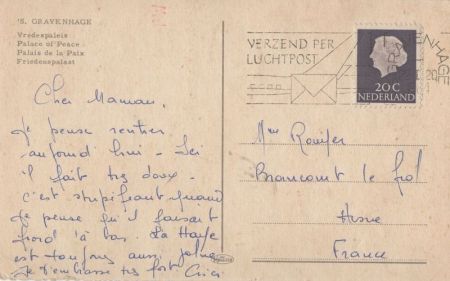 'S. GRAVENHAGE
Vredespaleis
Palace of Peace
Palais de la Paix
Friedenspalast
Cher Maman,
Je pense rentrer
aujourd'hui - Ici
il fait très doux -
c'est stupéfiant quand
je pense qu'il faisait
froid là bas. La Haye
est toujours aussi jolie
Je t'embrasse très fort
VERZEND PER
LUCHTPOST
20 C
NEDERLAND
ENHAGE
Mme
Beaucourt le
Aisne
France